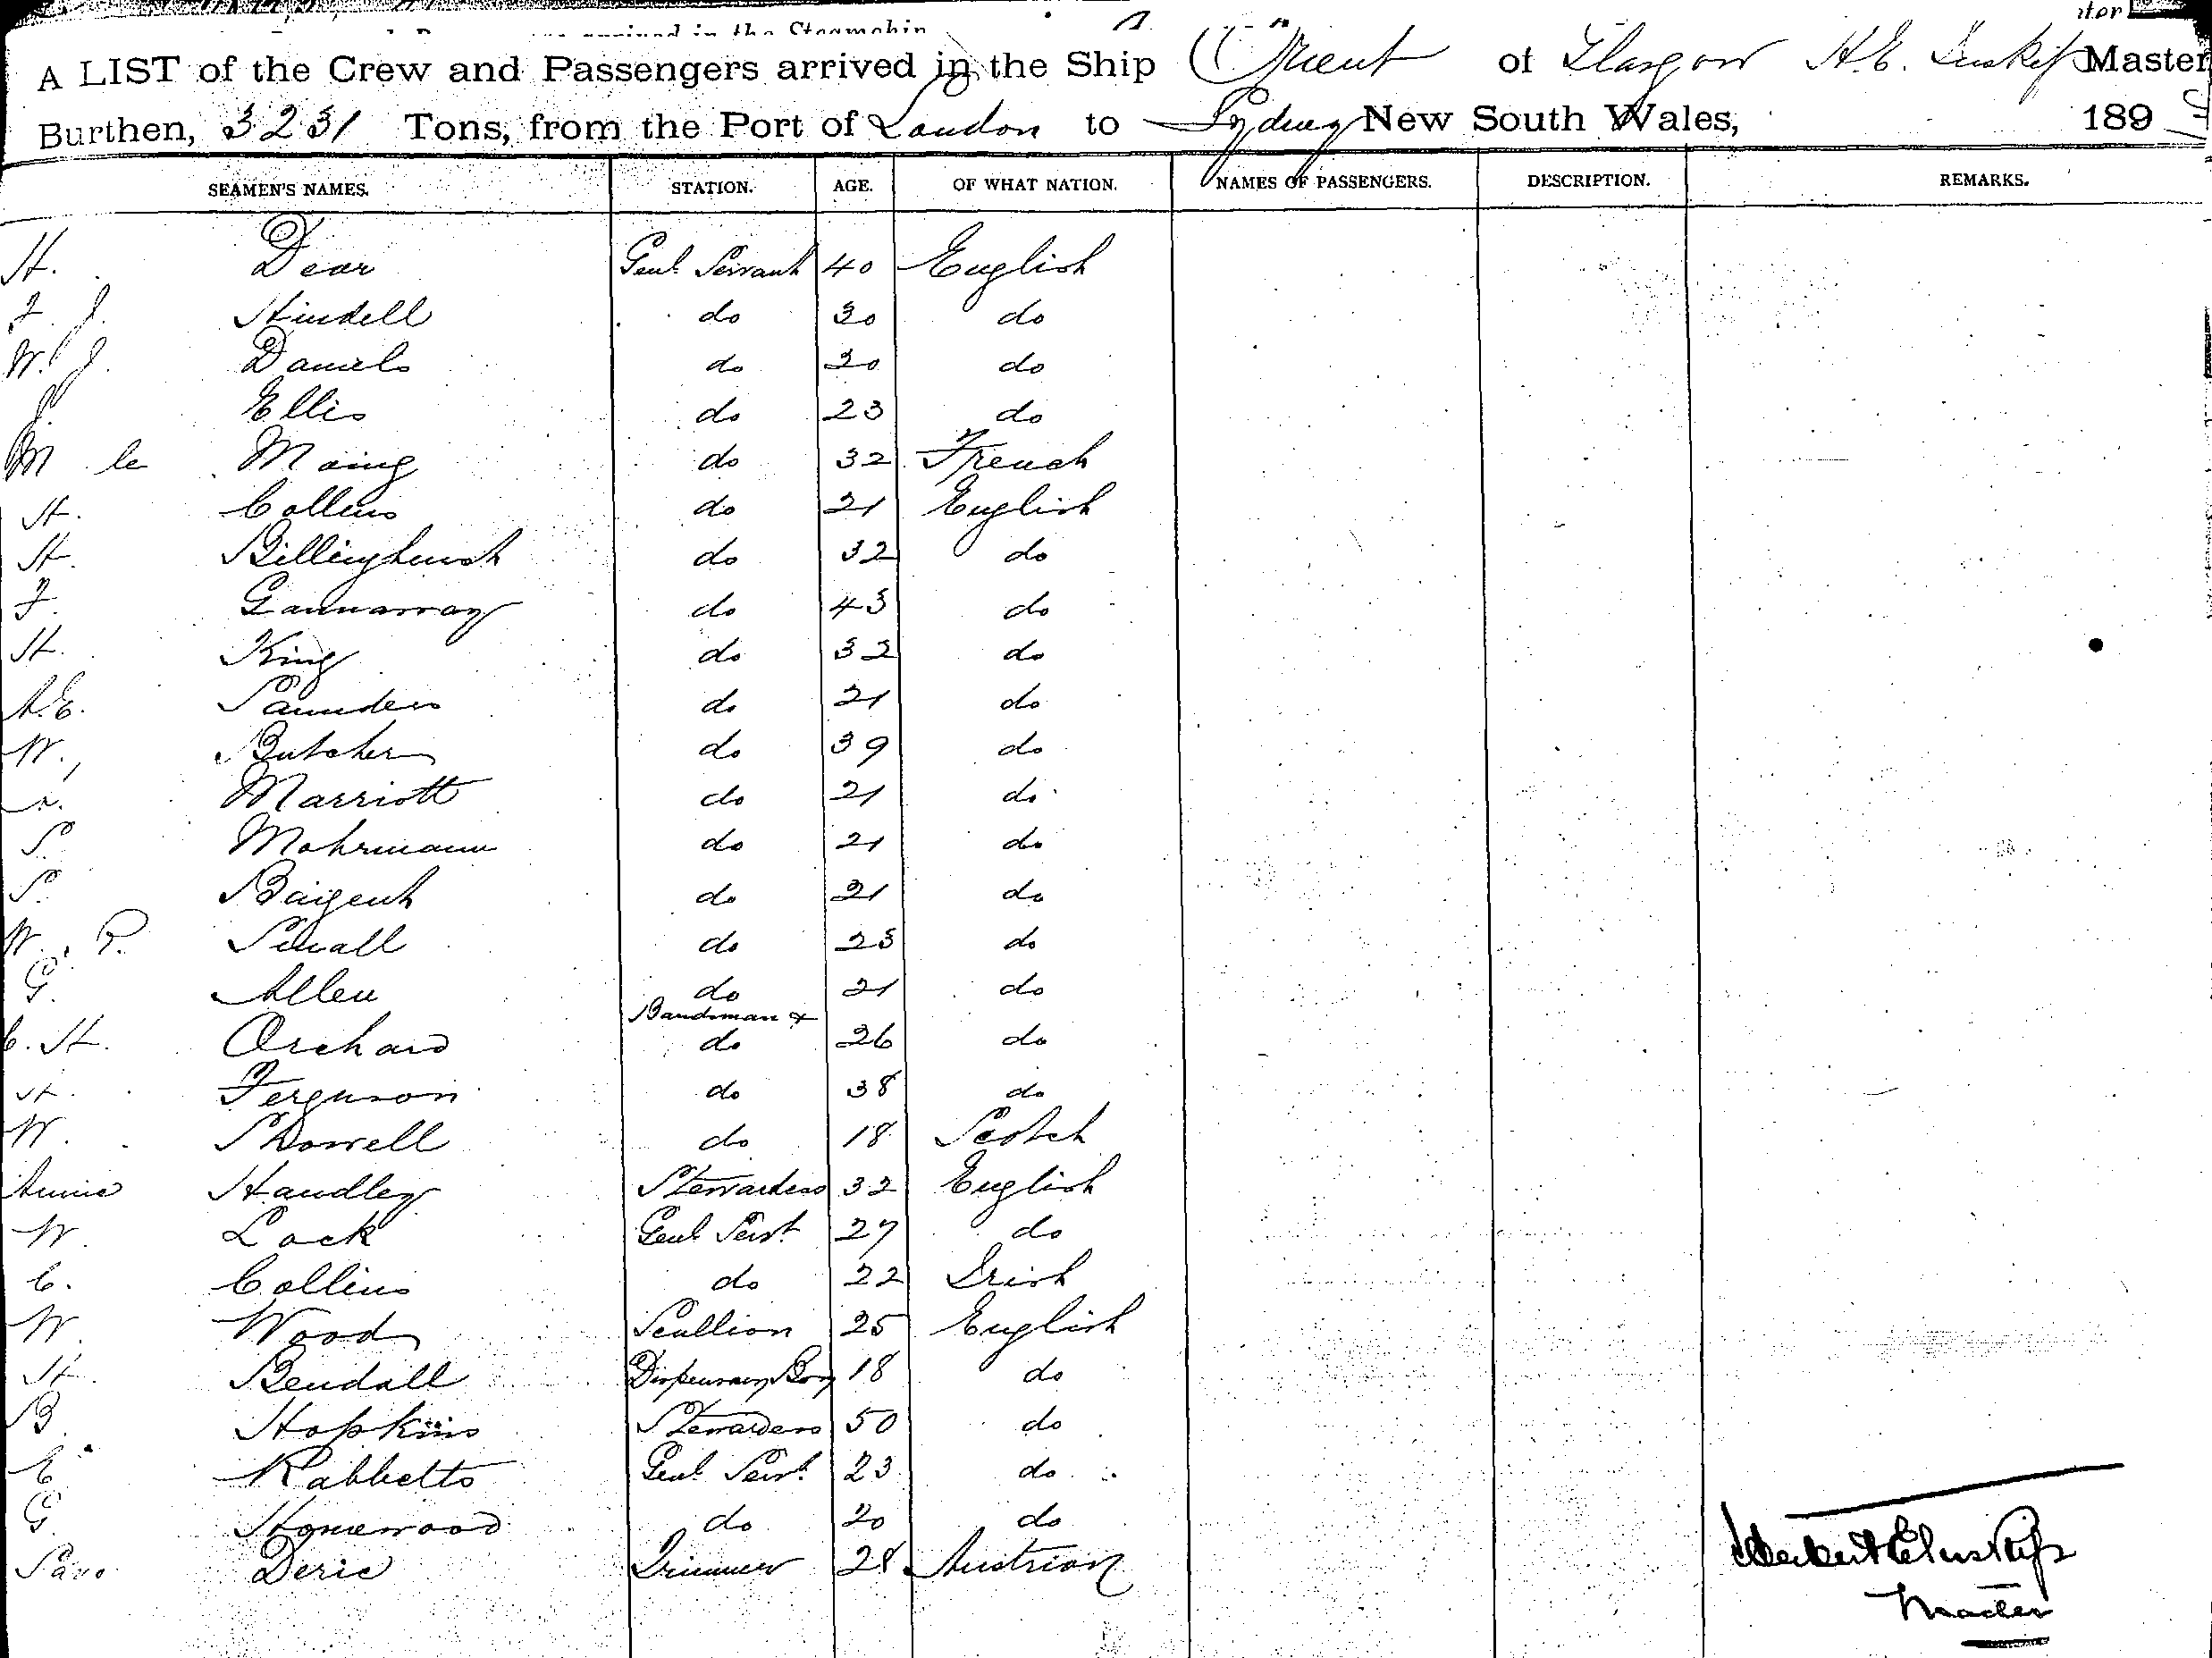 arrived in the Steamship
A LIST of the Crew and Passengers arrived in the Ship Orient of Glasgow H.E. Inskip Master
Burthen, 3231 Tons, from the Port of London to Sydney New South Wales, 189
SEAMEN'S NAMES. STATION. AGE. OF WHAT NATION. NAMES OF PASSENGERS. DESCRIPTION. REMARKS.
H. Dear Genl. Servant 40 English
F. J. Hindell do 30 do
W. J. Daniels do 20 do
J. Ellis do 23 do
M le Maing do 32 French
H. Collins do 21 English
H. Billinghurst do 32 do
F. Gannaway do 43 do
H. King do 32 do
A.E. Saunders do 21 do
W. Butcher do 39 do
Marriott do 21 do
S. Mohrmann do 21 do
S. Baigent do 21 do
W. P. Small do 23 do
G. Allen do 21 do
C. H. Orchard Bandsman & do 26 do
H. Ferguson do 38 do
W. Showell do 18 Scotch
Annie Handley Stewardess 32 English
W. Lock Genl. Servt. 27 do
C. Collins do 22 Irish
W. Wood Scullion 25 English
H. Bendall Dispensary Boy 18 do
B Hopkins Stewardess 50 do
E Rabbetts Genl. Servt. 23 do
G. Homewood do 20 do
Savo Deric Trimmer 28 Austrian
Herbert E Inskip
Master